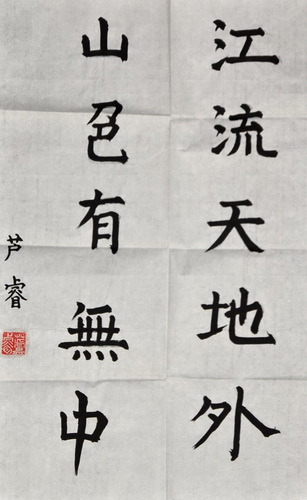 江流天地外
山色有無中
芦睿